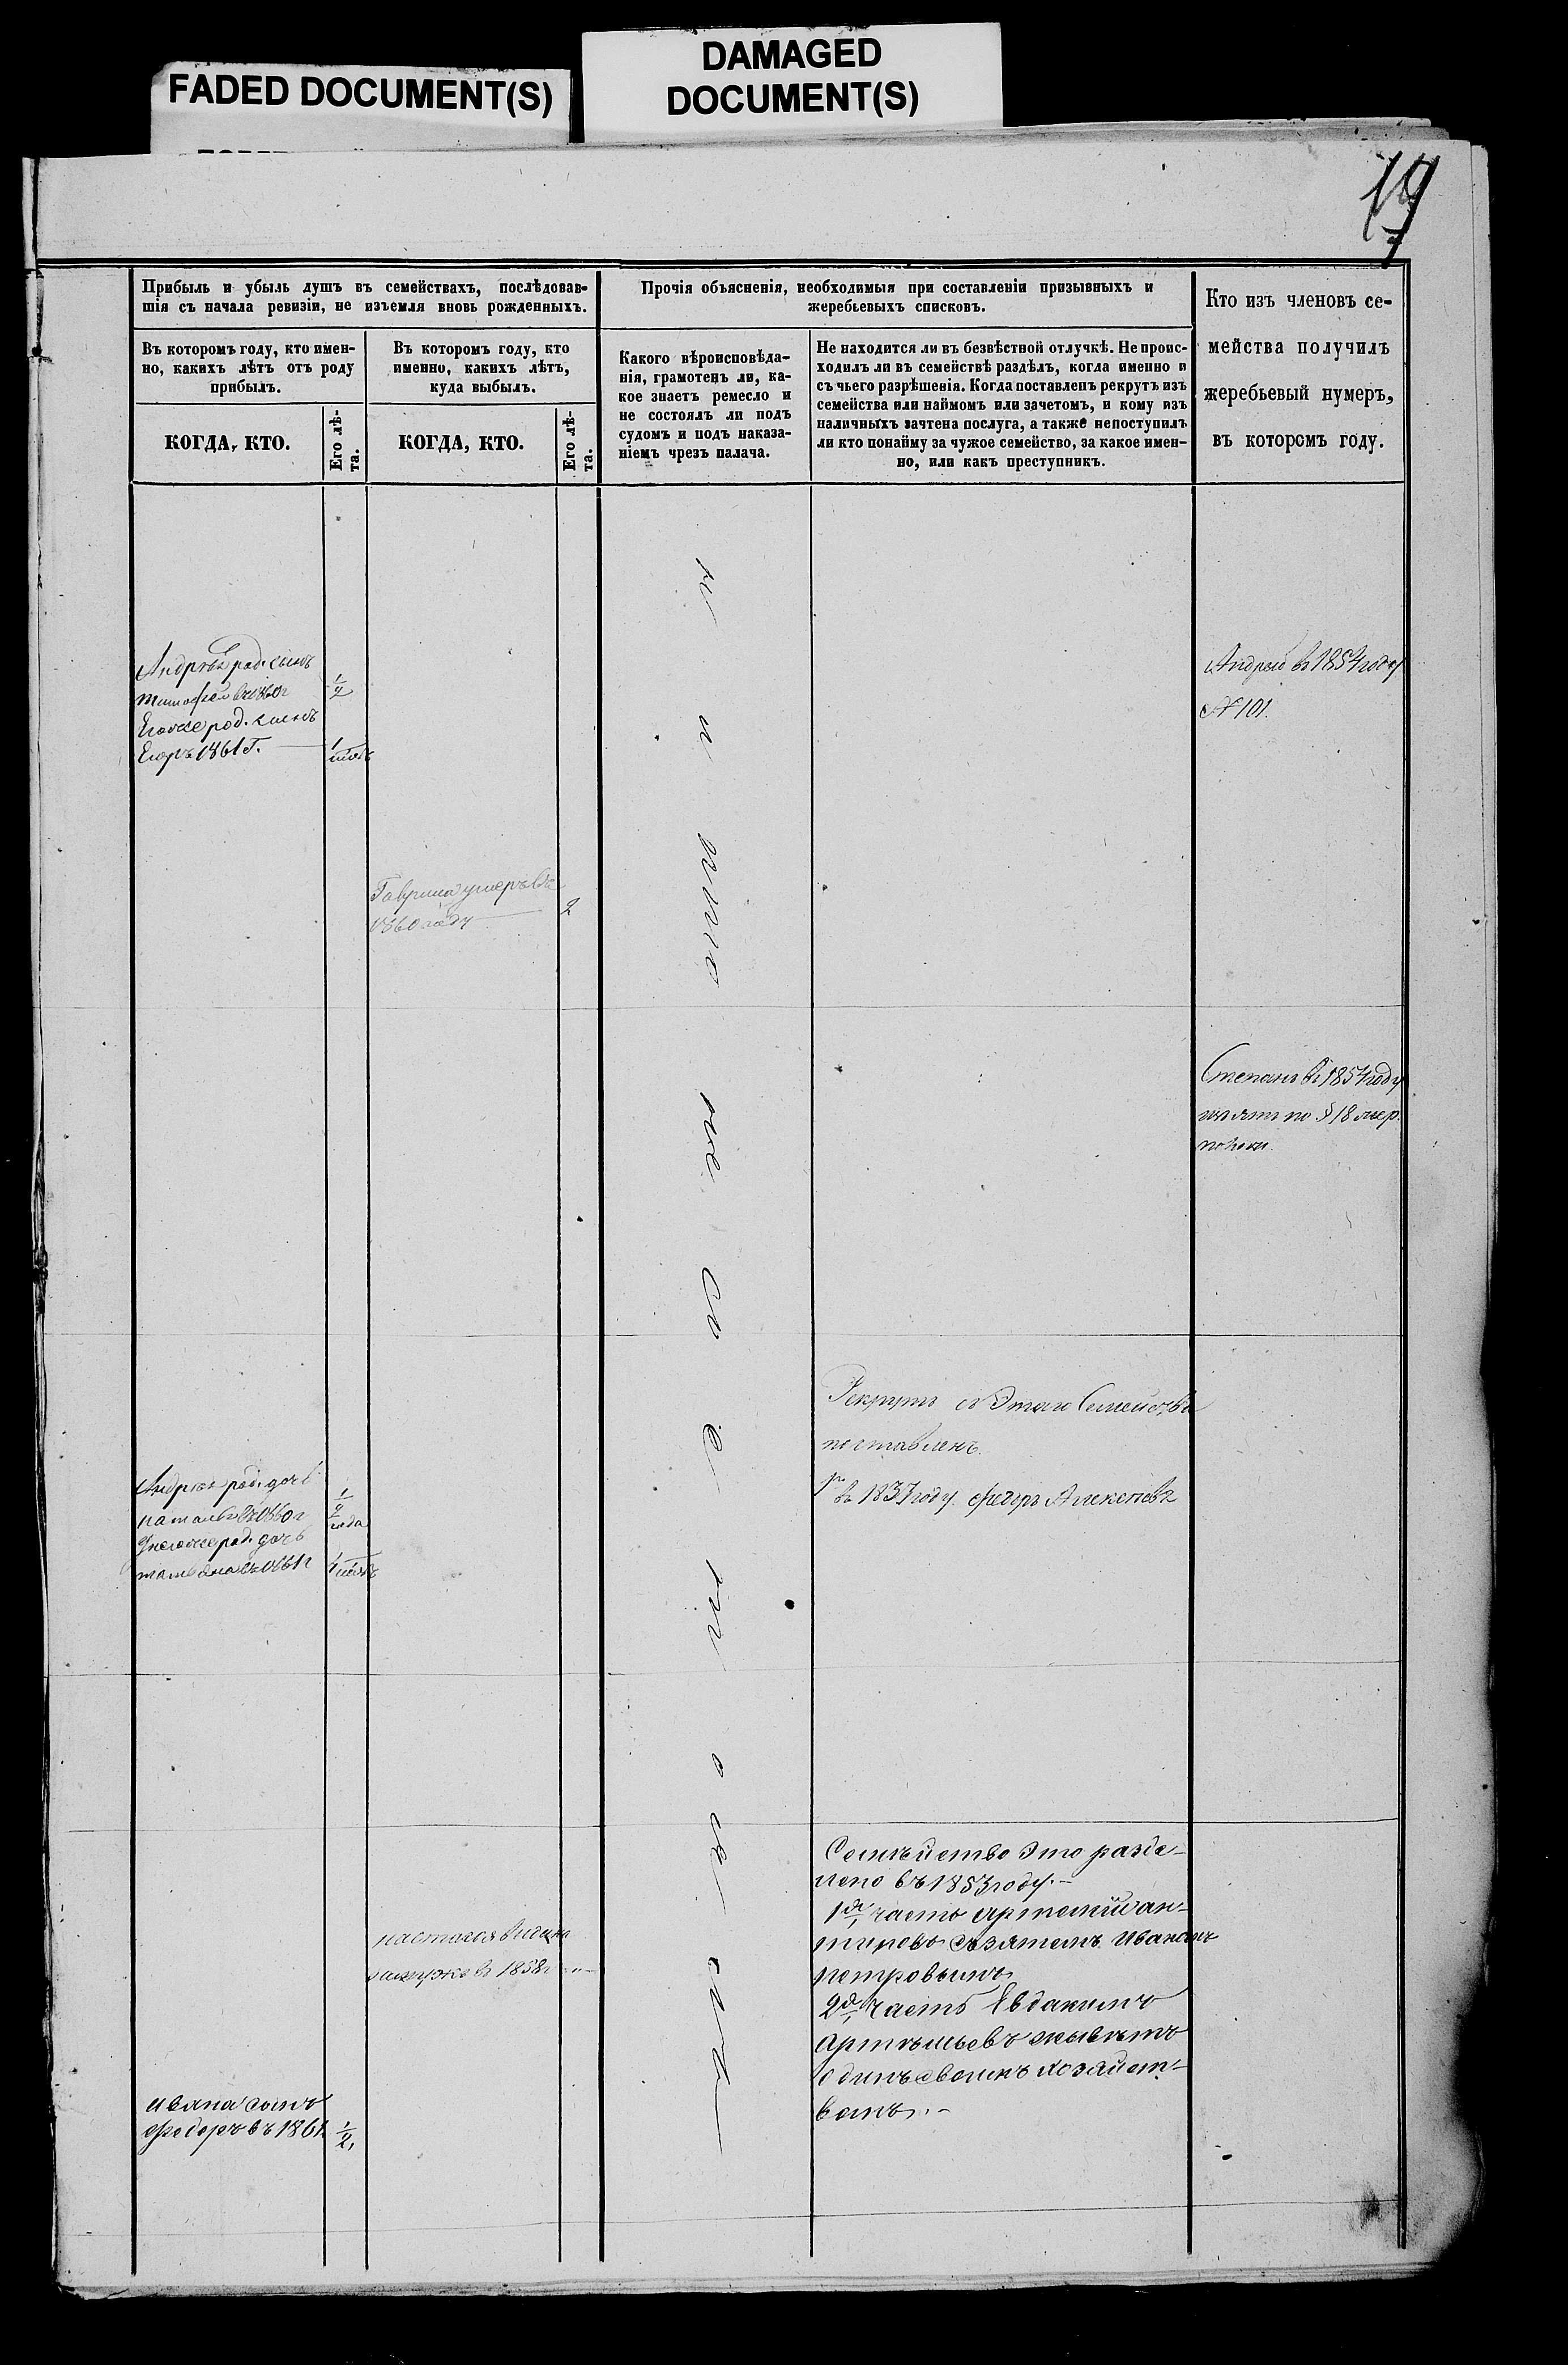 FADED DOCUMENT(S)
DAMAGED
DOCUMENT(S)
Прибыль и убыль душъ въ семействахъ, послѣдовав-
шія съ начала ревизіи, не изъемля вновь рожденныхъ.
Въ которомъ году, кто имен-
но, какихъ лѣтъ отъ роду
прибылъ.
КОГДА, КТО.
Его лѣ-
та.
Въ которомъ году, кто
именно, какихъ лѣтъ,
куда выбылъ.
КОГДА, КТО.
Его лѣ-
та.
Прочія объясненія, необходимыя при составленіи призывныхъ и
жеребьевыхъ списковъ.
Какого вѣроисповѣда-
нія, грамотенъ ли, ка-
кое знаетъ ремесло и
не состоялъ ли подъ
судомъ и подъ наказа-
ніемъ чрезъ палача.
Не находится ли въ безвѣстной отлучкѣ. Не проис-
ходилъ ли въ семействѣ раздѣлъ, когда именно и
съ чьего разрѣшенія. Когда поставленъ рекрутъ изъ
семейства или наймомъ или зачетомъ, и кому изъ
наличныхъ зачтена послуга, а также непоступилъ
ли кто понайму за чужое семейство, за какое имен-
но, или какъ преступникъ.
Кто изъ членовъ се-
мейства получилъ
жеребьевый нумеръ,
въ которомъ году.
Андрея род. сынъ
тимофей въ 1860г
1/2
Егоже род. сынъ
Егоръ 1861 г.
Андрей въ 1854 году
№ 101.
Гаврила умеръ въ
1860 году
2
Степанъ въ 1854 году
по § 18
Рекрутъ съ Этаго Семейства
поставленъ
въ 1837 году. Федоръ Алексеевъ
Андрея род. дочь
наталья въ 1860г
1/2
года
Унегоже род. дочь
татьяна въ 1861г
Семъйство Это разде-
лено въ 1853 году.-
1я часть артемий ан-
типовъ съ зятемъ Иваномъ
петровымъ
2я часть Евдакимъ
артѣмьевъ живѣтъ
одинъ своимъ хозяйст-
вомъ.-
настасья выдана
замужъ въ 1858г
ивана сынъ
федоръ въ 1861
1/2